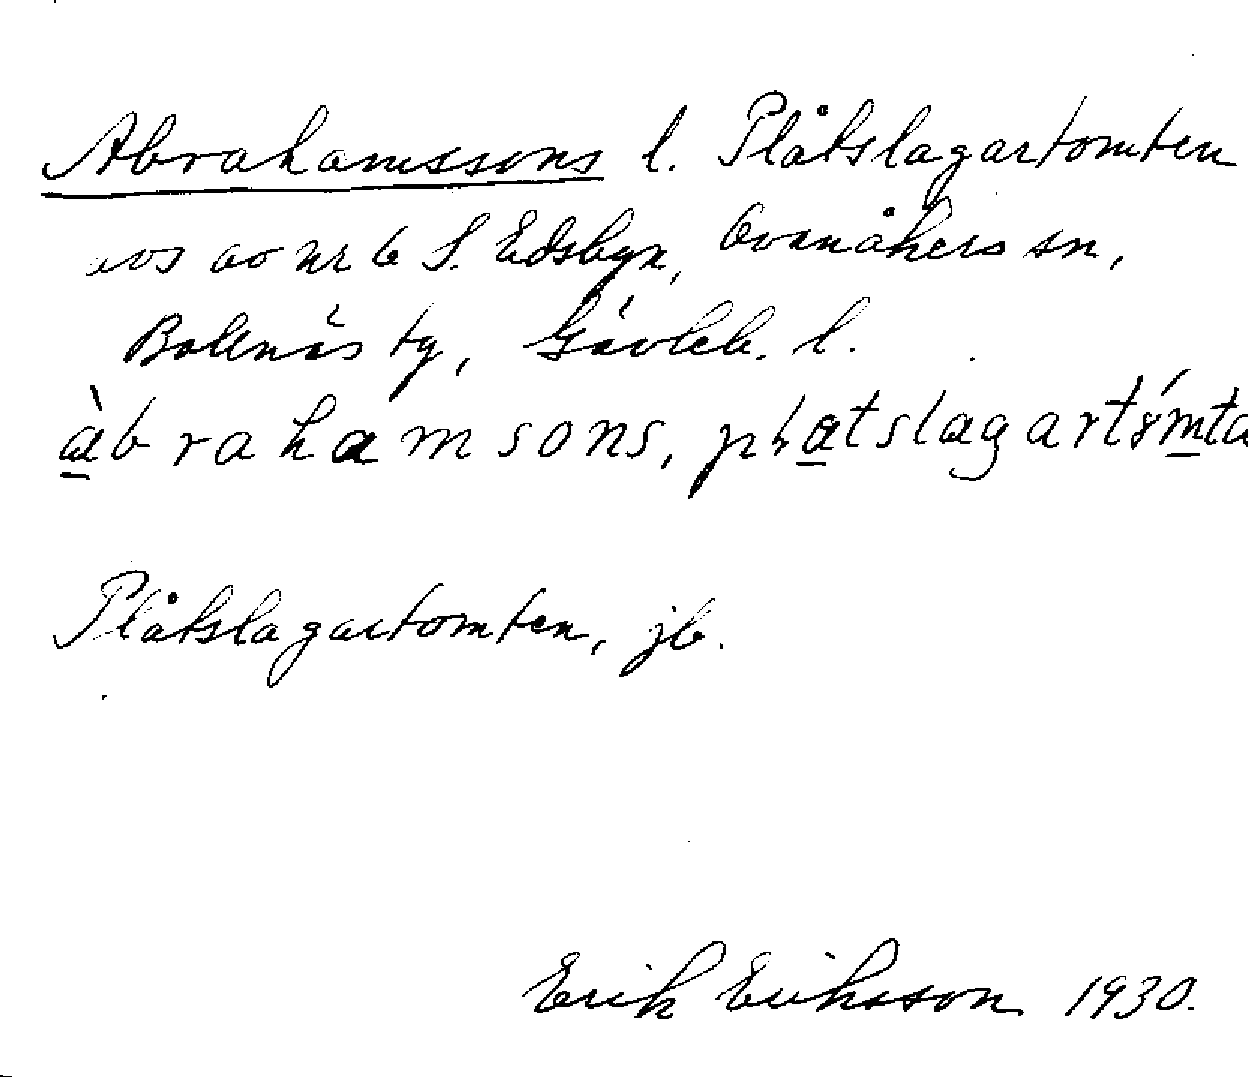 Abrahamssons l. Plåtslagartomten
avs av nr 6 S. Edsbyn, Ovanåkers sn,
Bollnäs tg, Gävleb. l.
àbrahamsons,
Plåtslagartomten, jb.
Erik Eriksson 1930.